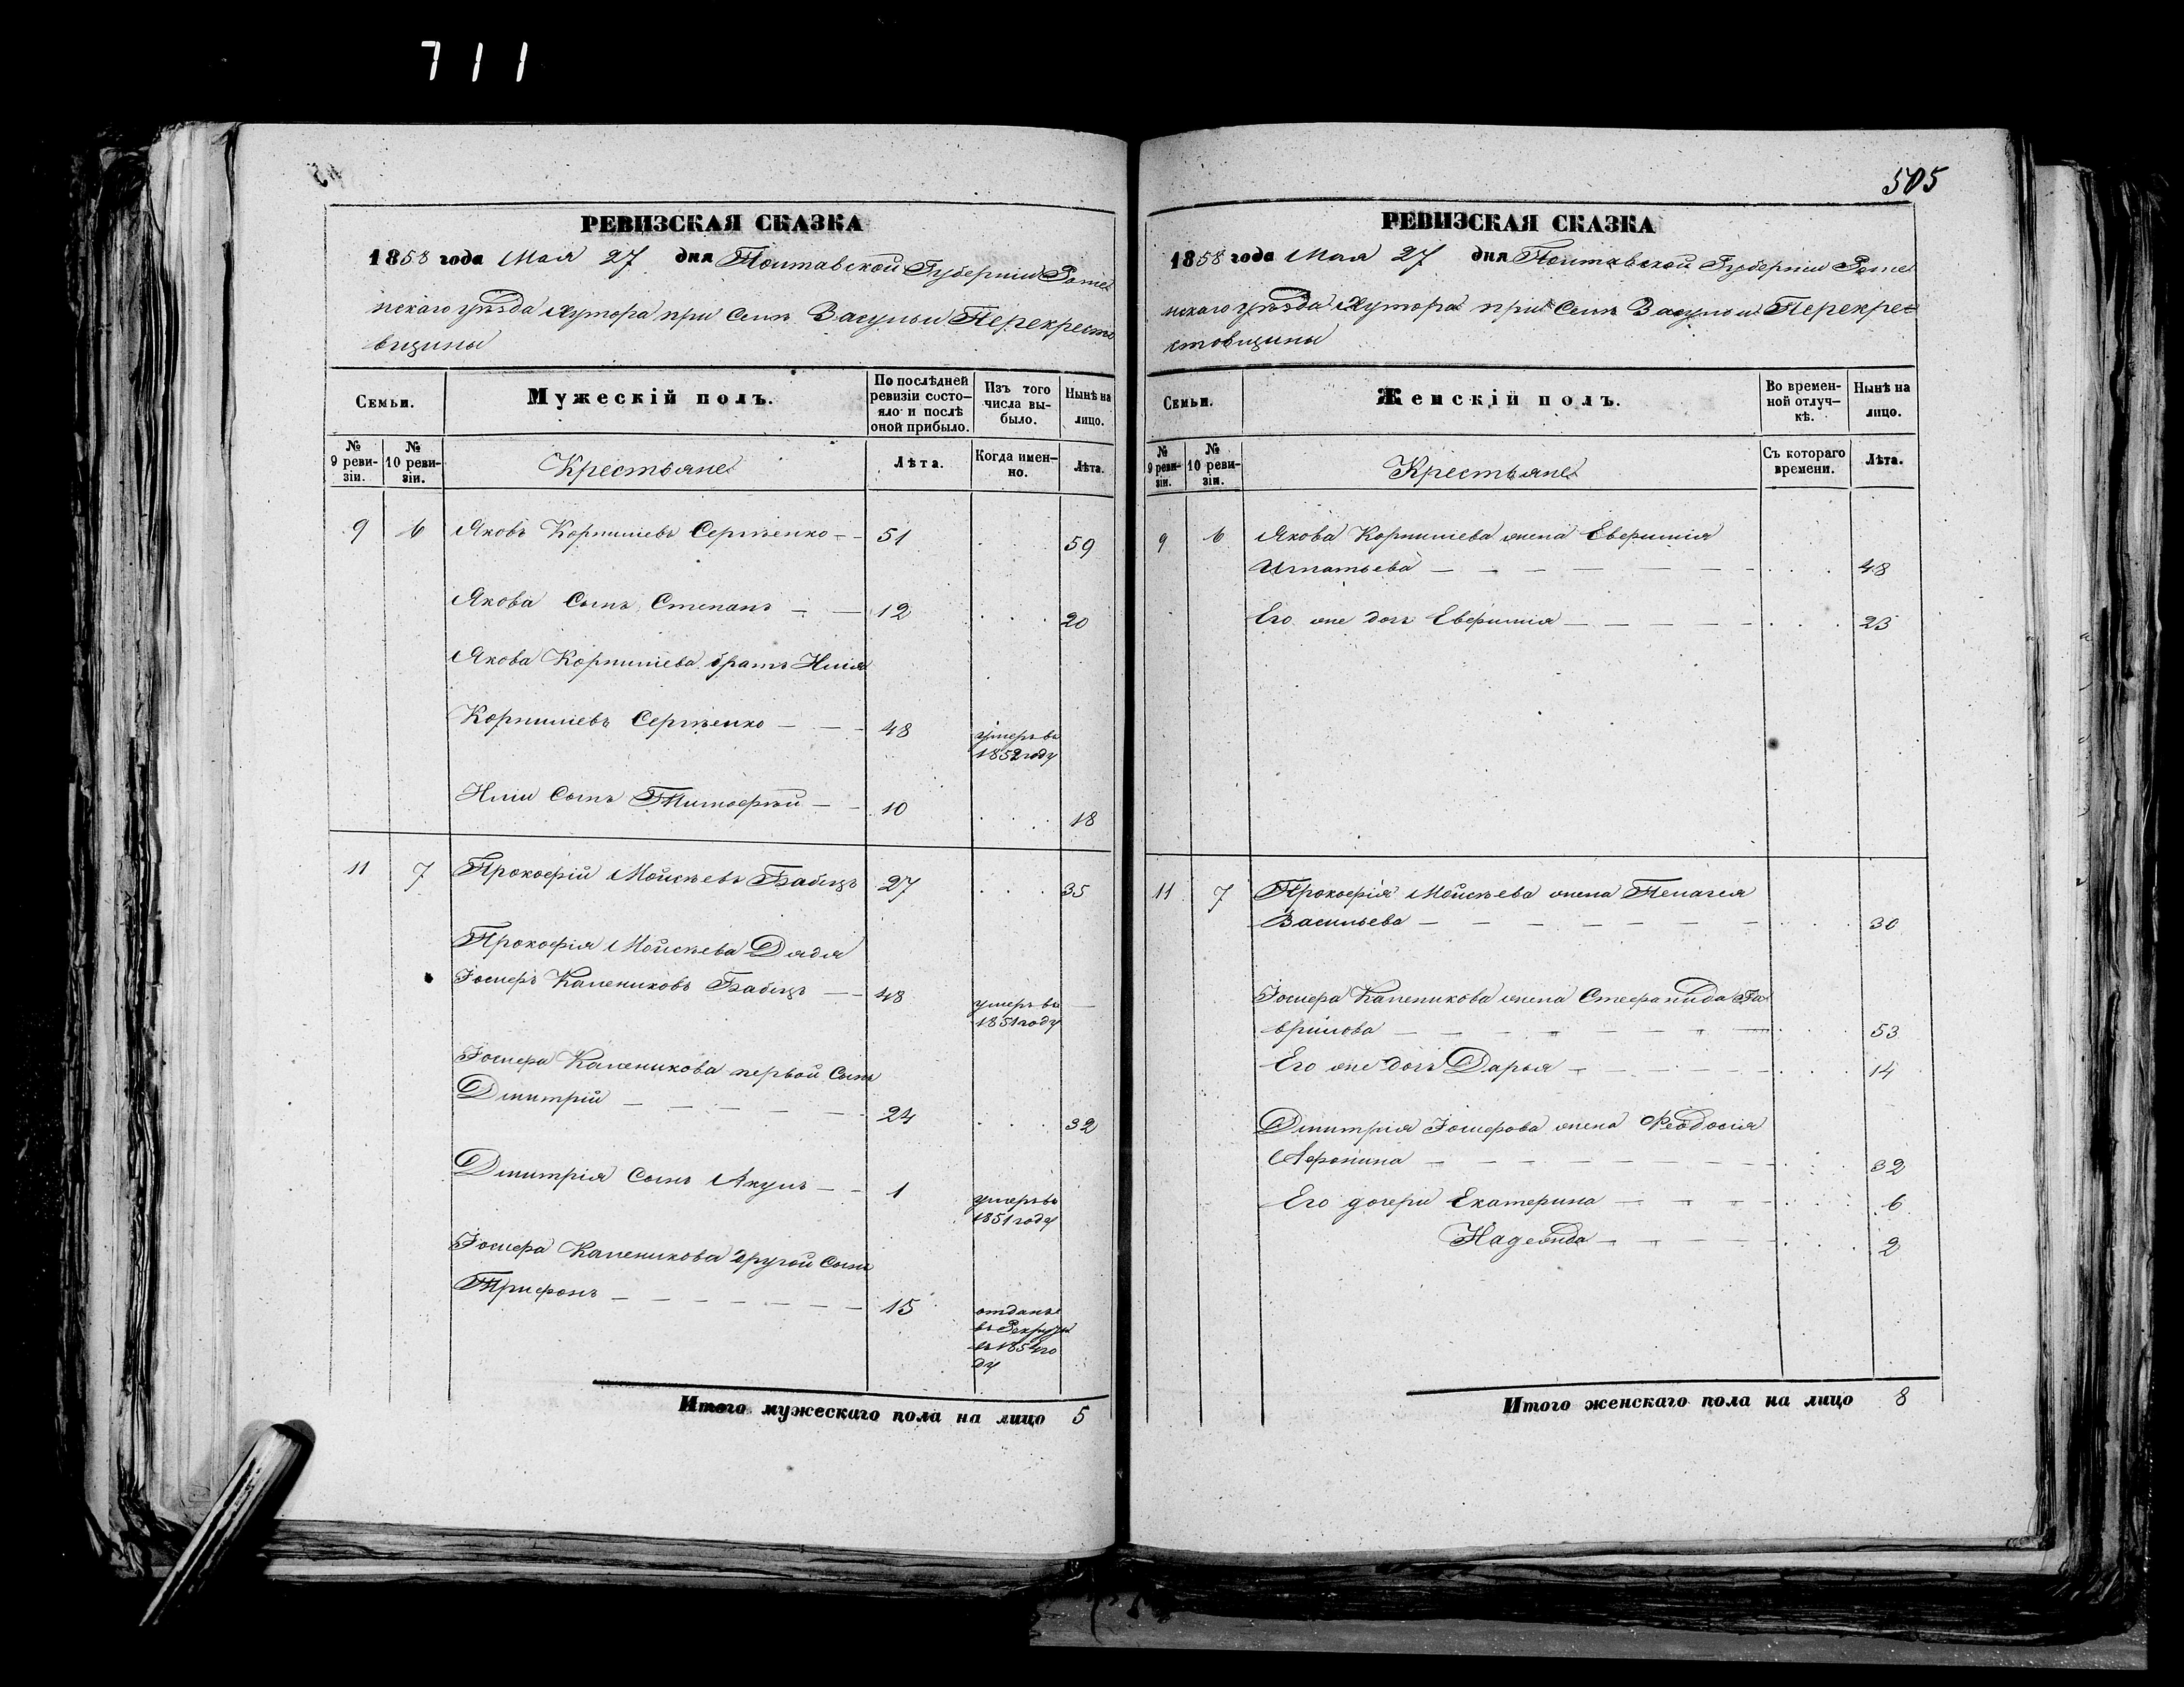 711
505
РЕВИЗСКАЯ СКАЗКА
1858 года Мая 27 дня Полтавской Губерніи Роме
нскаго уѣзда Хутора при Селѣ Засульи Перекресто
вщины
Семьи.
Мужескій полъ.
По послѣдней
ревизіи состо–
яло и послѣ
оной прибыло.
Изъ того
числа вы–
было.
Нынѣ на
лицо.
№
9 реви–
зіи.
№
10 реви–
зіи.
Крестьяне
Лѣта.
Когда имен–
но.
Лѣта.
9 6 Яковъ Корниліевъ Сергѣенко 51 59
Якова Сынъ Степанъ 12 20
Якова Корниліева братъ Илія
Корниліевъ Сергѣенко 48
умеръ въ
1852 году
Иліи Сынъ Тимофѣй 10 18
11 7 Прокофій Мойсѣевъ Бабецъ 27 35
Прокофія Мойсѣева Дядя
Іосифъ Калениковъ Бабецъ 48
умеръ въ
1851 году
Іосифа Каленикова первой Сынъ
Дмитрій 24 32
Дмитрія Сынъ Акулъ 1
умеръ въ
1851 году
Іосифа Каленикова другой Сынъ
Трифонъ 15
отданъ
въ Рекруты
въ 1854 го
ду
Итого мужескаго пола на лицо 5
РЕВИЗСКАЯ СКАЗКА
1858 года Мая 27 дня Полтавской Губерніи Роме
нскаго уѣзда Хутора при Селѣ Засульи Перекре
стовщины
Семьи.
Женскій полъ.
Во времен–
ной отлуч–
кѣ.
Нынѣ на
лицо.
№
9 реви–
зіи.
№
10 реви–
зіи.
Крестьяне
Съ котораго
времени.
Лѣта.
9 6 Якова Корниліева жена Евфимія
Игнатьева 48
Его же дочь Евфимія 23
11 7 Прокофія Мойсѣева жена Пелагея
Васильева 30
Іосифа Каленикова жена Стефанида Га
врилова 53
Его же дочь Дарья 14
Дмитрія Іосифова жена Феодосія
Афонина 32
Его дочери Екатерина 6
Надежда 2
Итого женскаго пола на лицо 8